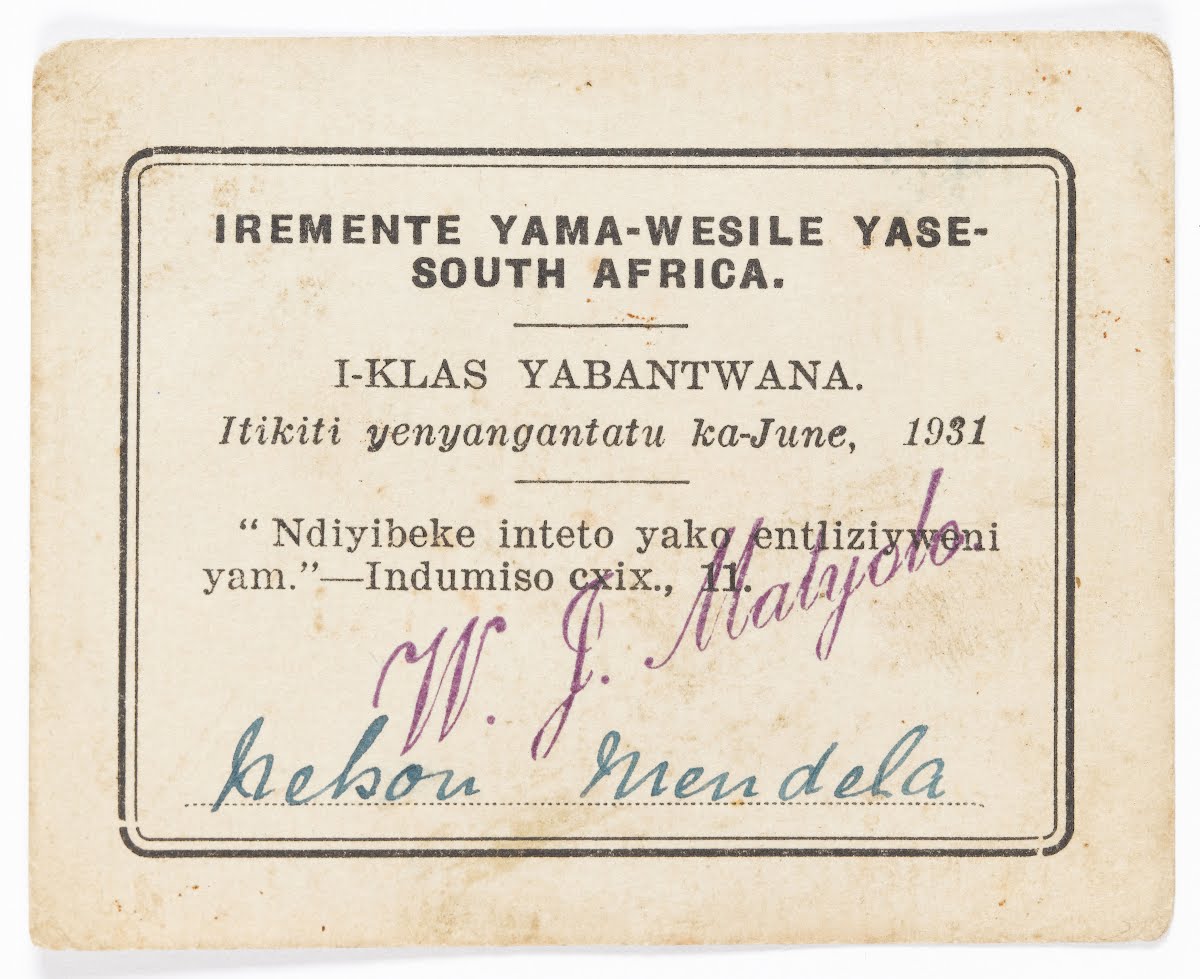 IREMENTE YAMA-WESILE YASE-
SOUTH AFRICA.
I-KLAS YABANTWANA.
Itikiti yenyangantatu ka-June, 1931
“ Ndiyibeke inteto yako entliziyweni
yam.”—Indumiso cxix., 11.
W. J. Matyolo.
Nelson Mendela